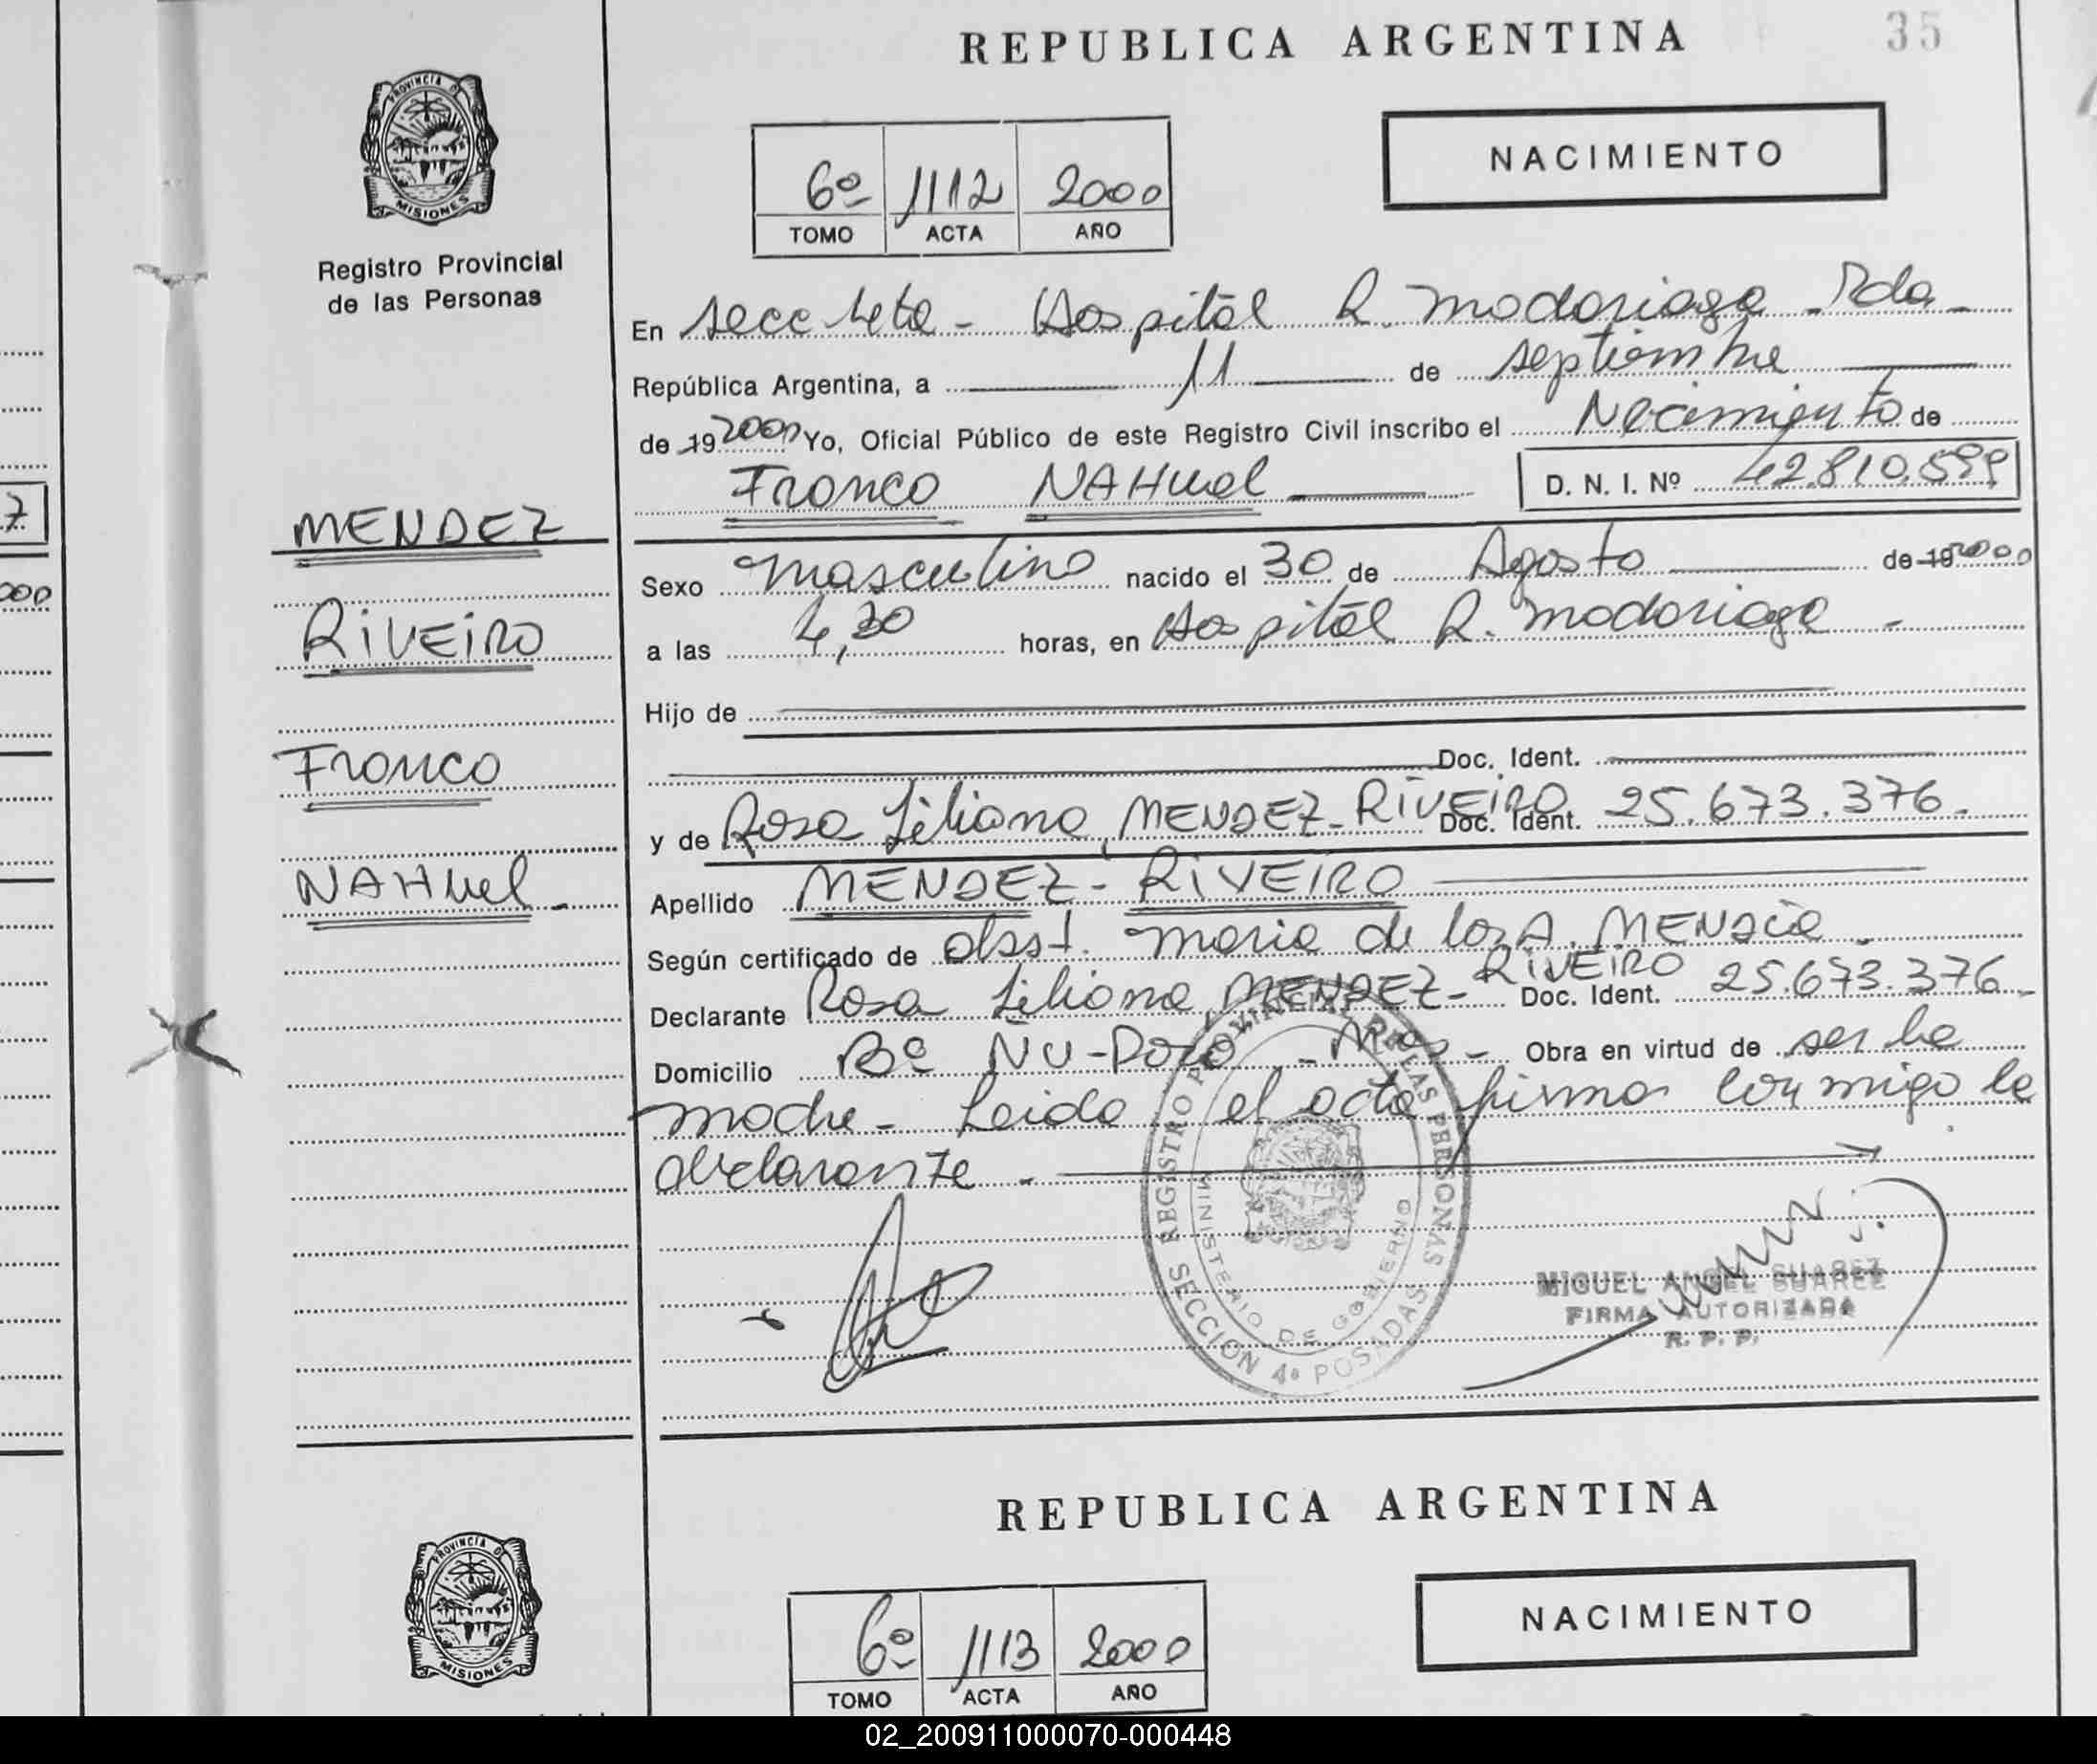 REPUBLICA ARGENTINA
35
PROVINCIA DE
MISIONES
Registro Provincial
de las Personas
6º 1112 2000
TOMO ACTA AÑO
NACIMIENTO
En secc 4ta - Hospital R. Madariaga - Pdas -
República Argentina, a 11 de septiembre
de 19 2000 Yo, Oficial Público de este Registro Civil inscribo el Nacimiento de
Franco NAHuel
D. N. I. Nº 42.810.599
Sexo masculino nacido el 30 de Agosto de 19 2000
a las 4,30 horas, en Hospital R. Madariaga -
Hijo de
Doc. Ident.
y de Rosa Liliana, MENDEZ-RIVEIRO Doc. Ident. 25.673.376.
Apellido MENDEZ - RIVEIRO
Según certificado de obst. maria de los A. MENDEZ
Declarante Rosa Liliana, MENDEZ-RIVEIRO Doc. Ident. 25.673.376.
Domicilio Bº - Obra en virtud de ser la
madre - Leida el acta firma conmigo la
declarante -
MENDEZ
RiVEiRO
Franco
NAHuel -
REGISTRO PROVINCIAL DE LAS PERSONAS
SECCION 4ª POSADAS
MINISTERIO DE GOBIERNO
MIGUEL ANGEL SUAREZ
FIRMA AUTORIZADA
R. P. P.
7
000
REPUBLICA ARGENTINA
PROVINCIA DE
MISIONES
6º 1113 2000
TOMO ACTA AÑO
NACIMIENTO
02_200911000070-000448